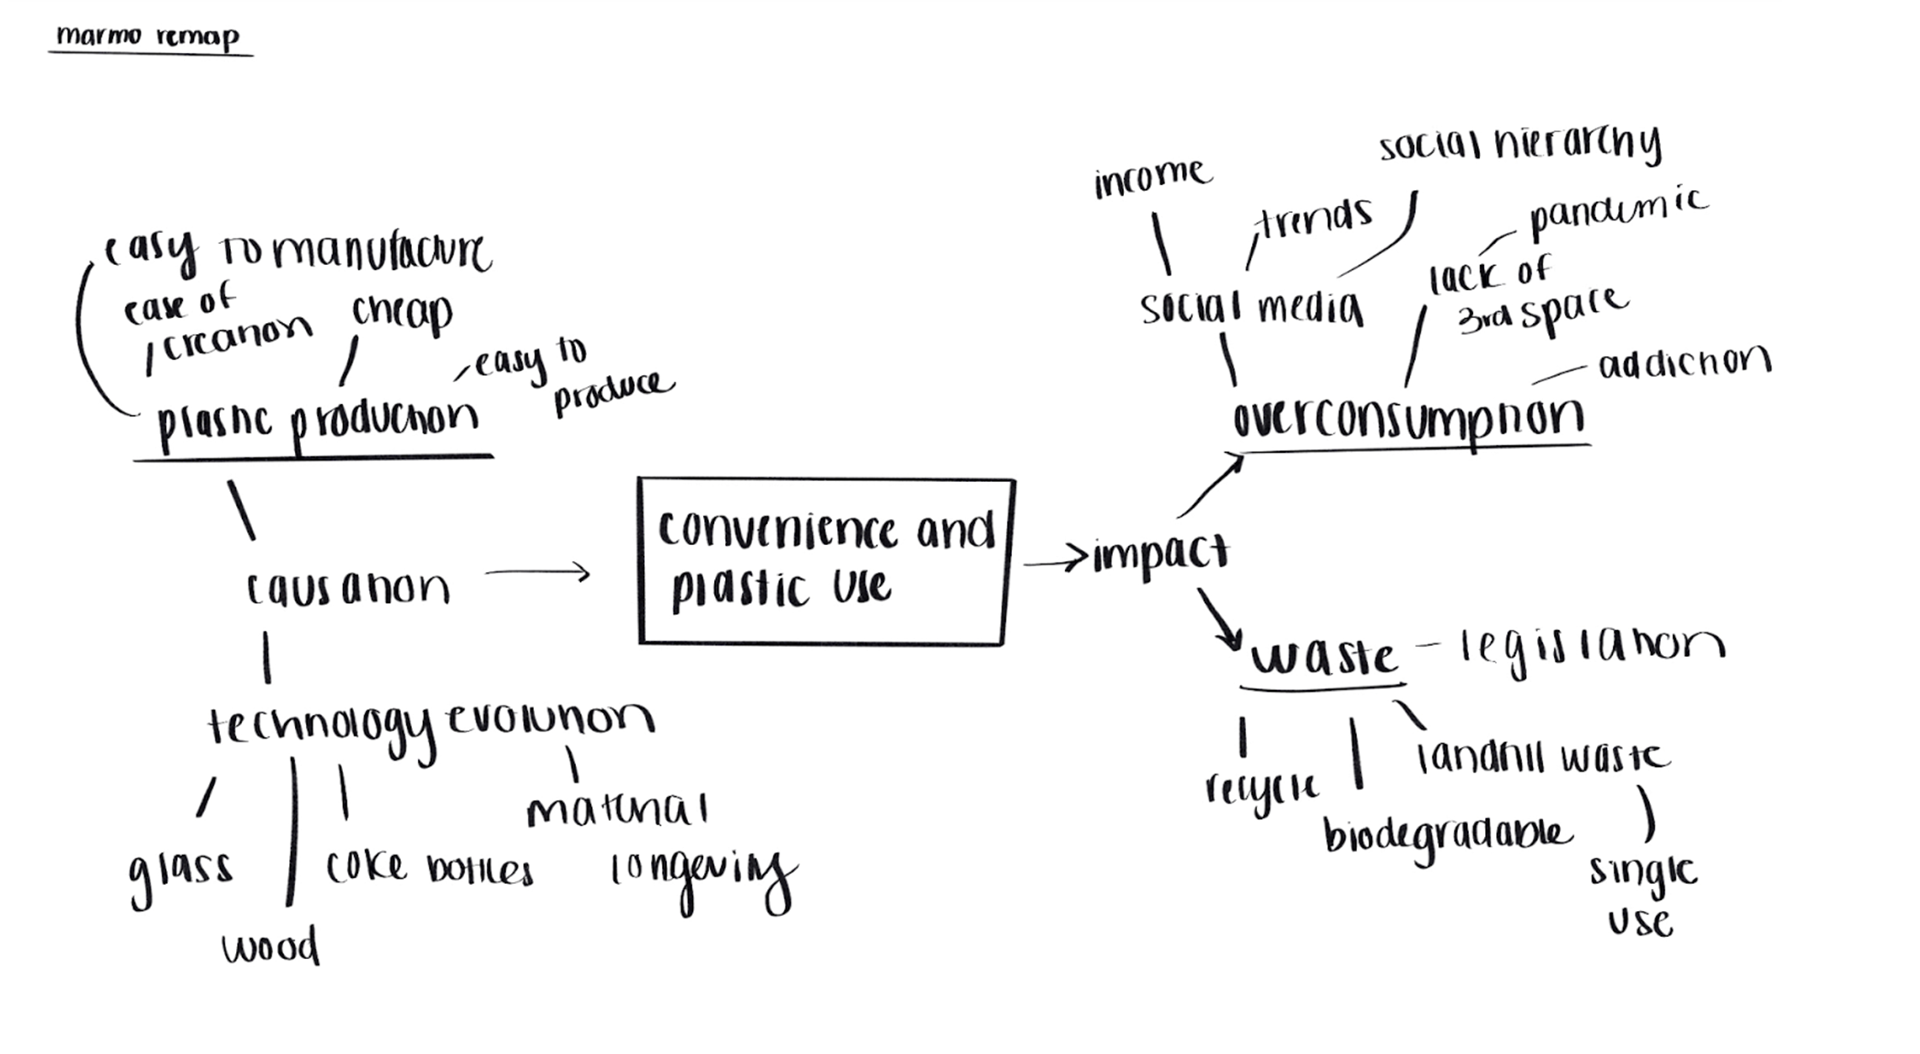 marmo remap
easy to manufacture
ease of
creation
cheap
easy to
produce
plastic production
causation
technology evolution
glass
wood
coke bottles
material
longevity
convenience and
plastic use
impact
income
trends
social hierarchy
social media
pandemic
lack of
3rd space
addiction
overconsumption
waste - legislation
recycle
biodegradable
landfill waste
single
use